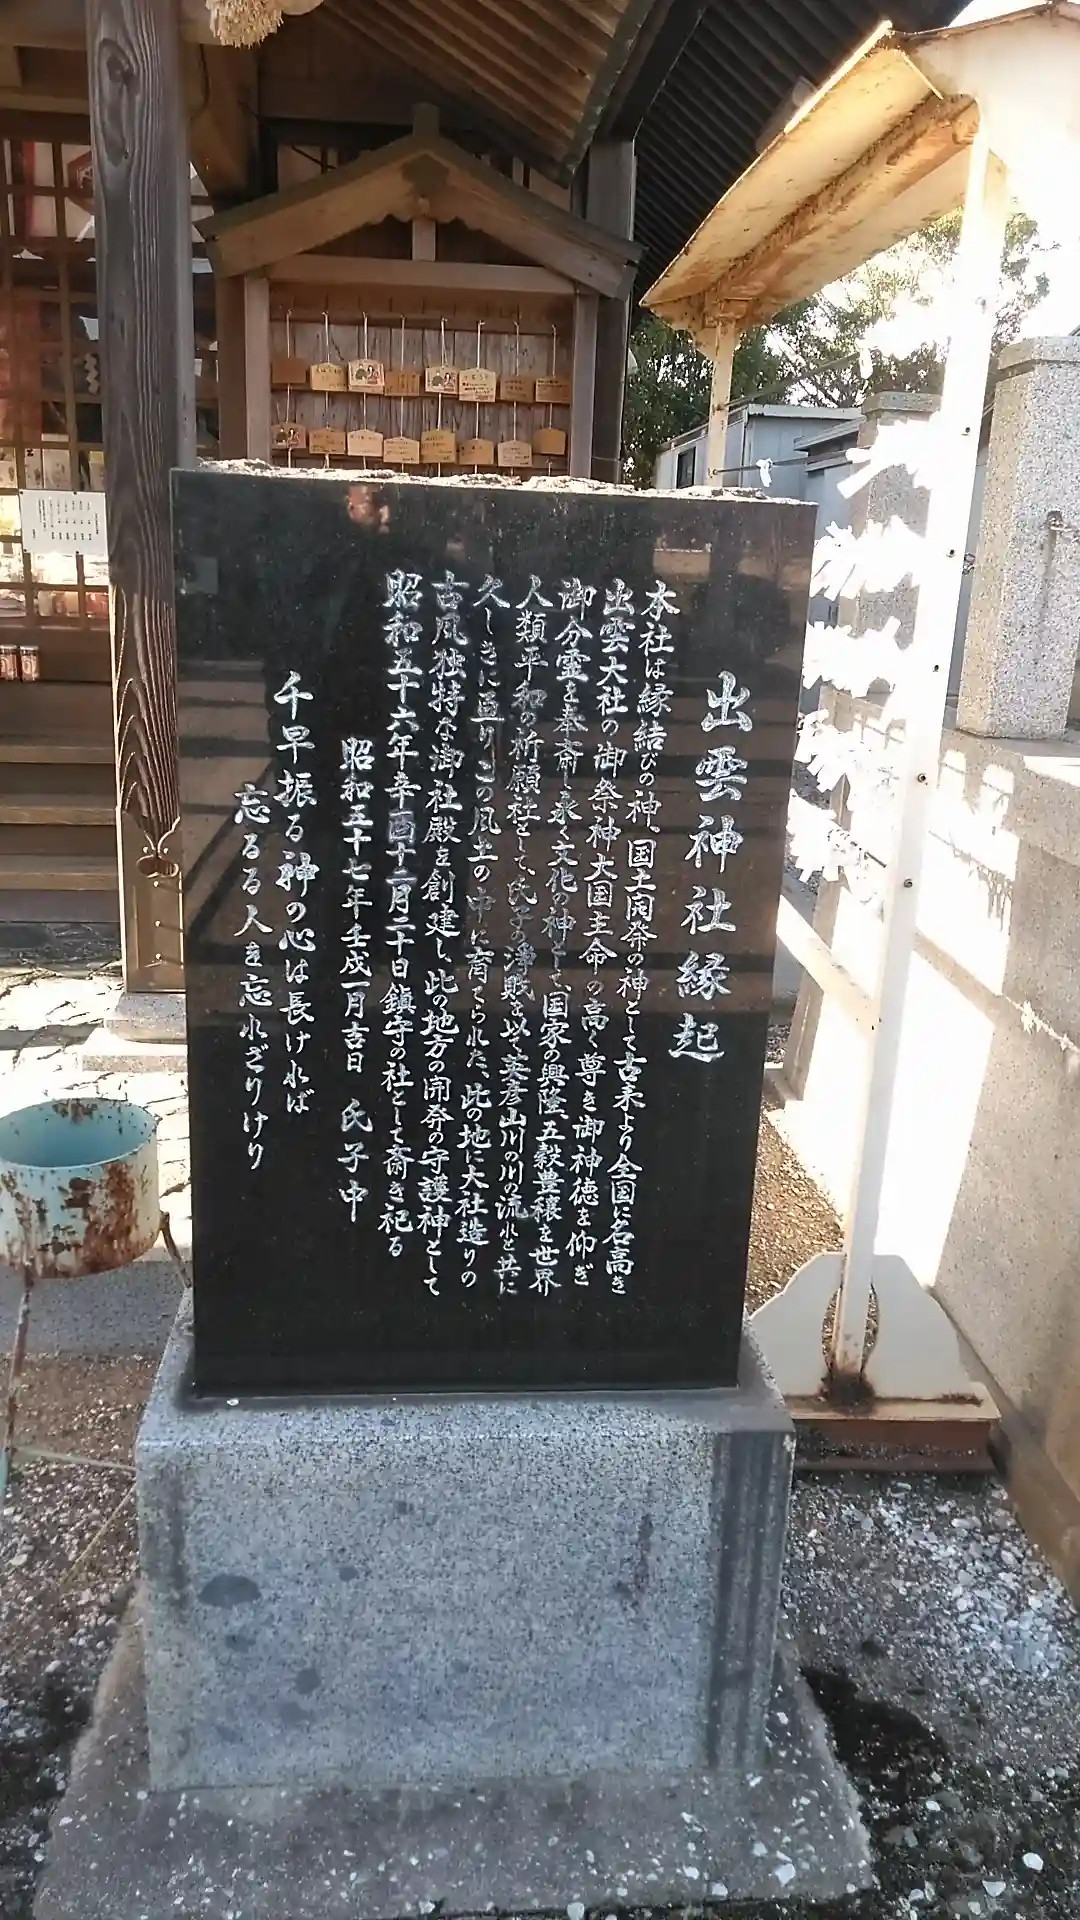 出雲神社縁起
本社は縁結びの神、国土開発の神として古来より全国に名高き
出雲大社の御祭神大国主命の高く尊き御神徳を仰ぎ
御分霊を奉斎し永く文化の神として、国家の興隆、五穀豊穣を世界
人類平和の祈願社として、氏子の浄財を以て英彦山川の川の流れと共に
久しきに亘りこの風土の中に育てられた、此の地に大社造りの
古風独特な御社殿を創建し、此の地方の開発の守護神として
昭和五十六年辛酉十二月二十日鎮守の社として斎き祀る
昭和五十七年壬戌一月吉日 氏子中
千早振る神の心は長ければ
忘るる人を忘れざりけり